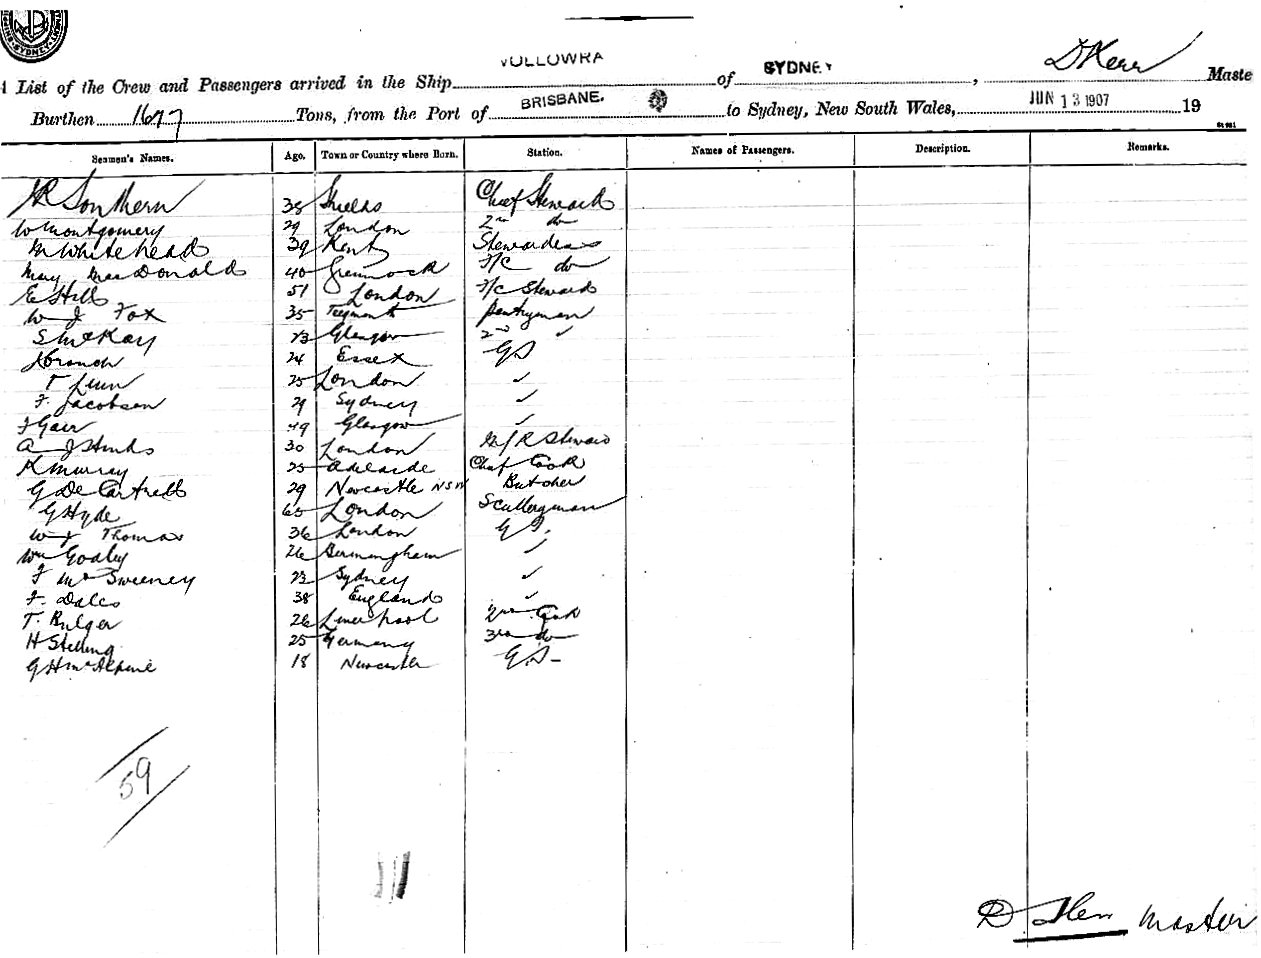 SYDNEY
List of the Crew and Passengers arrived in the Ship WOLLOWRA of SYDNEY, D Kerr Maste
Burthen 1677 Tons, from the Port of BRISBANE. to Sydney, New South Wales, JUN 13 1907 19
Seamen's Names. Age. Town or Country where Born. Station. Names of Passengers. Description. Remarks.
Southern 38 Shields Chief Steward
W Montgomery 29 London 2nd do
M Whitehead 39 Kent Stewardess
Mary MacDonald 40 Greenock F/C do
E Hill 51 London F/C Steward
W J Fox 35 Pantryman
S McKay 23 Glasgow 2nd ✓
24 Essex GS
T Lunn 25 London ✓
F. Jacobson 29 Sydney ✓
F Gair 49 Glasgow ✓
A J Hinks 30 London S/R Steward
K Murray 25 Adelaide Chief Cook
G De Cartrell 29 Newcastle NSW Butcher
G Hyde 65 London Sculleryman
W J Thomas 36 London GS.
Wm Goaley 26 Birmingham ✓
F McSweeney 23 Sydney ✓
F. Dales 38 England ✓
T. Bulger 26 Liverpool 2nd Cook
H Stelling 25 Germany 3rd do
G H McAlpine 18 Newcastle G.S-
59
D Kerr Master